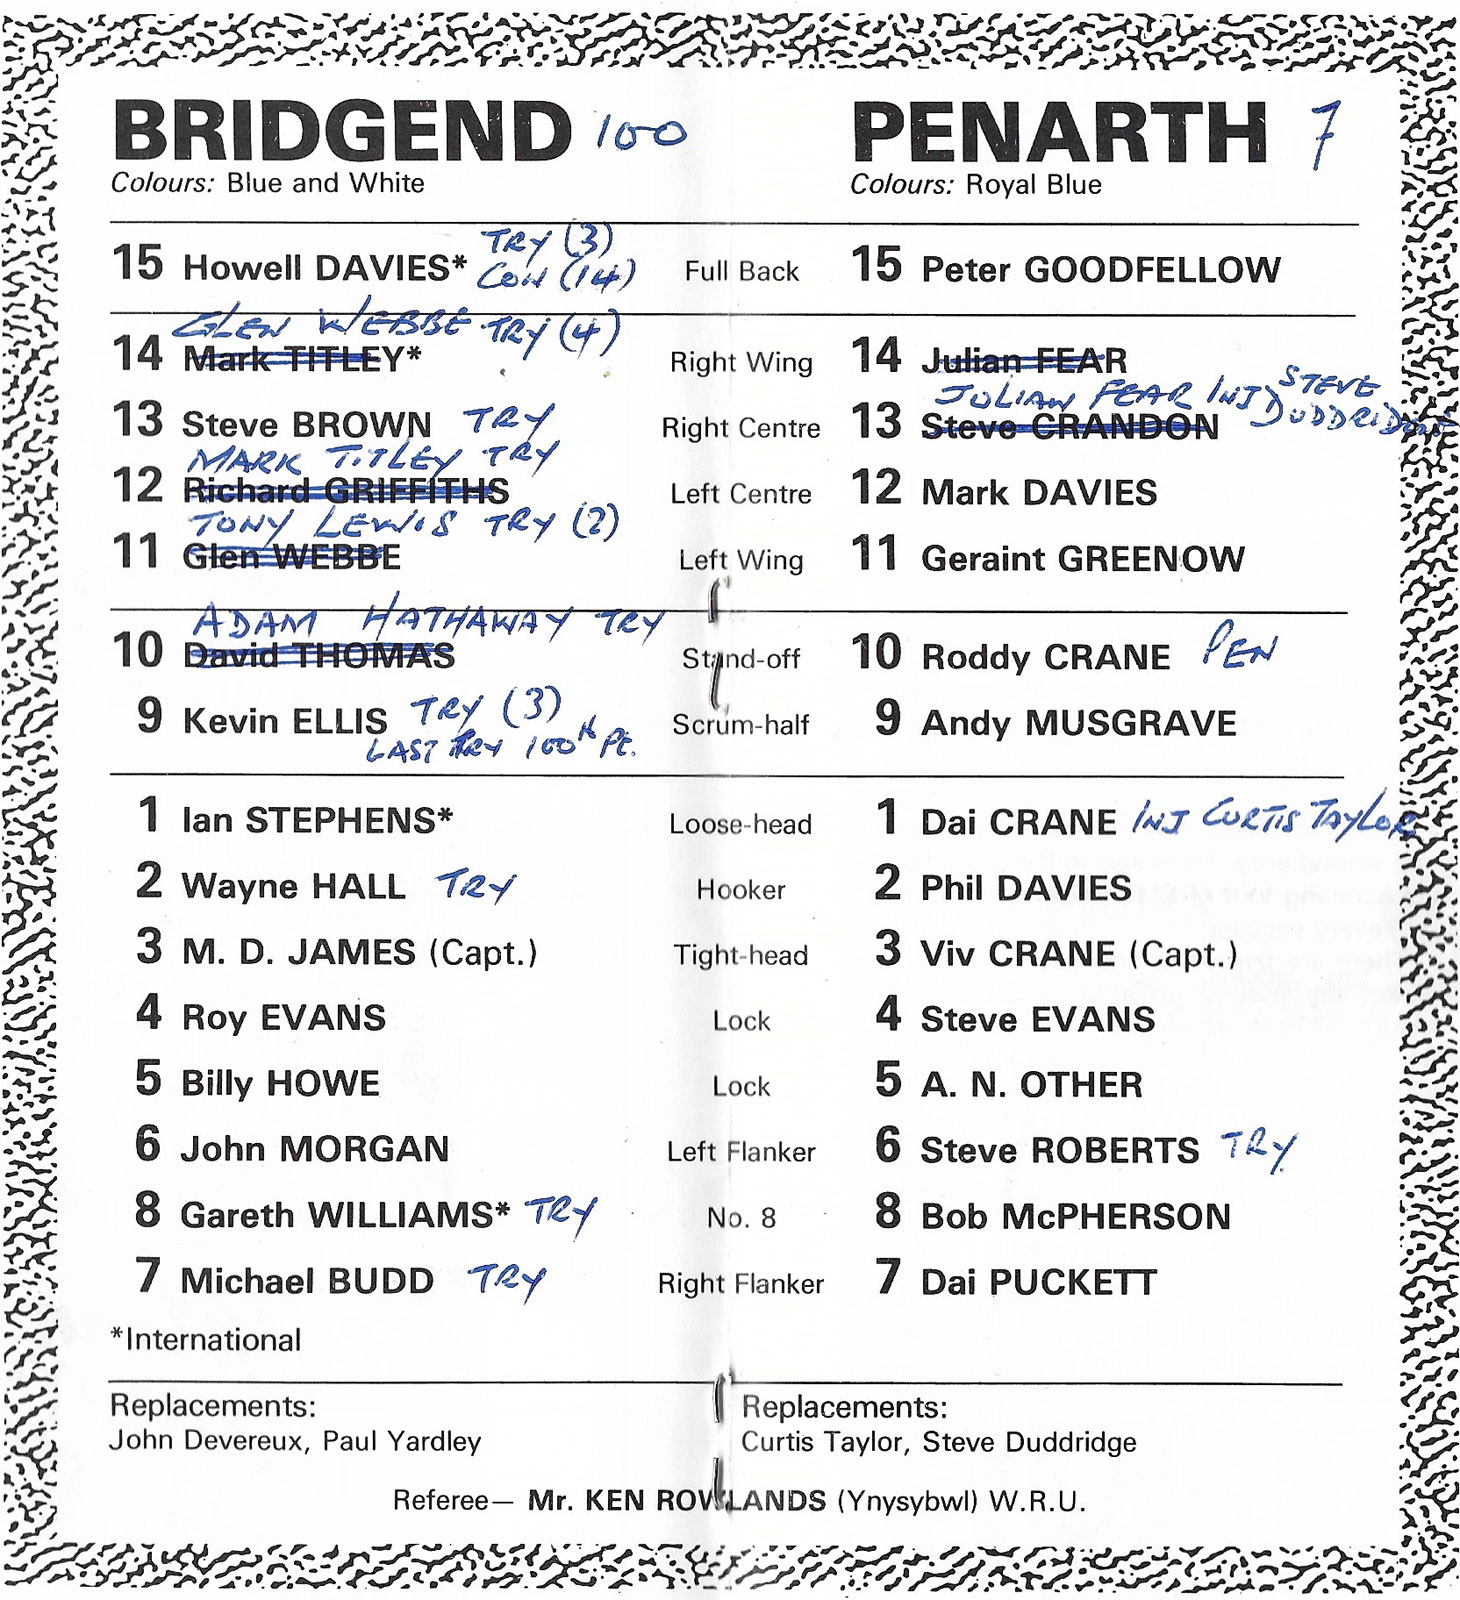 BRIDGEND 100 PENARTH 7
Colours: Blue and White Colours: Royal Blue
TRY (3)
15 Howell DAVIES* CON (14) Full Back 15 Peter GOODFELLOW
GLEN WEBBE TRY (4)
14 Mark TITLEY* Right Wing 14 Julian FEAR
JULIAN FEAR INJ STEVE DUDDRIDGE
13 Steve BROWN TRY Right Centre 13 Steve CRANDON
MARK TITLEY TRY
12 Richard GRIFFITHS Left Centre 12 Mark DAVIES
TONY LEWIS TRY (2)
11 Glen WEBBE Left Wing 11 Geraint GREENOW
ADAM HATHAWAY TRY
10 David THOMAS Stand-off 10 Roddy CRANE PEN
9 Kevin ELLIS TRY (3) Scrum-half 9 Andy MUSGRAVE
LAST TRY 100th PT.
1 Ian STEPHENS* Loose-head 1 Dai CRANE INJ CURTIS TAYLOR
2 Wayne HALL TRY Hooker 2 Phil DAVIES
3 M. D. JAMES (Capt.) Tight-head 3 Viv CRANE (Capt.)
4 Roy EVANS Lock 4 Steve EVANS
5 Billy HOWE Lock 5 A. N. OTHER
6 John MORGAN Left Flanker 6 Steve ROBERTS TRY
8 Gareth WILLIAMS* TRY No. 8 8 Bob McPHERSON
7 Michael BUDD TRY Right Flanker 7 Dai PUCKETT
*International
Replacements: Replacements:
John Devereux, Paul Yardley Curtis Taylor, Steve Duddridge
Referee— Mr. KEN ROWLANDS (Ynysybwl) W.R.U.